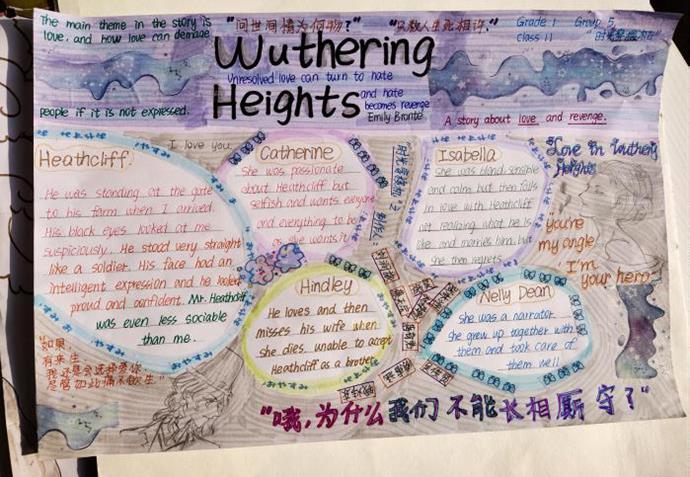 The main theme in the story is
love, and how love can damage
people if it is not expressed.
"问世间情为何物?" "只教人生死相许."
Wuthering
Unresolved love can turn to hate
Heights
and hate
becomes revenge
Emily Brontë
Grade 1 Group 5
Class 11
A story about love and revenge.
Heathcliff.
He was standing at the gate
to his farm when I arrived.
His black eyes looked at me
suspiciously. He stood very straight
like a soldier. His face had an
intelligent expression and he looked
proud and confident. Mr. Heathcliff
was even less sociable
than me.
I love you
Catherine
She was passionate
about Heathcliff but
selfish and wants everyone
and everything to be
as she wants it
Isabella
She was bland, sensible
and calm but then falls
in love with Heathcliff
not realizing what he is
like and marries him, but
she then regrets
Love in Wuthering
Heights
you're
my angle,
I'm
your hero
Hindley
He loves and then
misses his wife when
she dies, unable to accept
Heathcliff as a brother
Nelly Dean
She was a narrator
she grew up together with
them and took care of
them well
如果
有来生
我还是会选择爱你
尽管如此痛不欲生"
"哦,为什么我们不能长相厮守了"